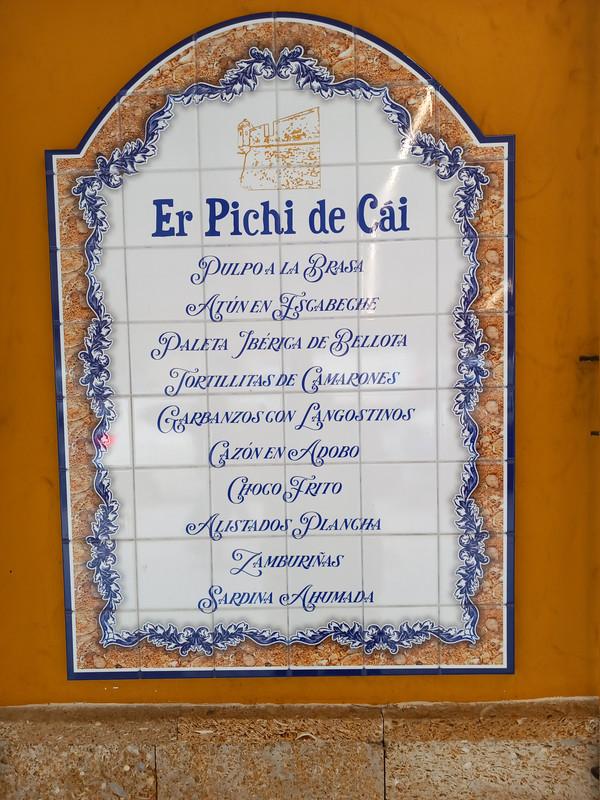 Er Pichi de Cái
Pulpo a la Brasa
Atún en Escabeche
Paleta Ibérica de Bellota
Tortillitas de Camarones
Garbanzos con Langostinos
Cazón en Adobo
Choco Frito
Alistados Plancha
Zamburiñas
Sardina Ahumada